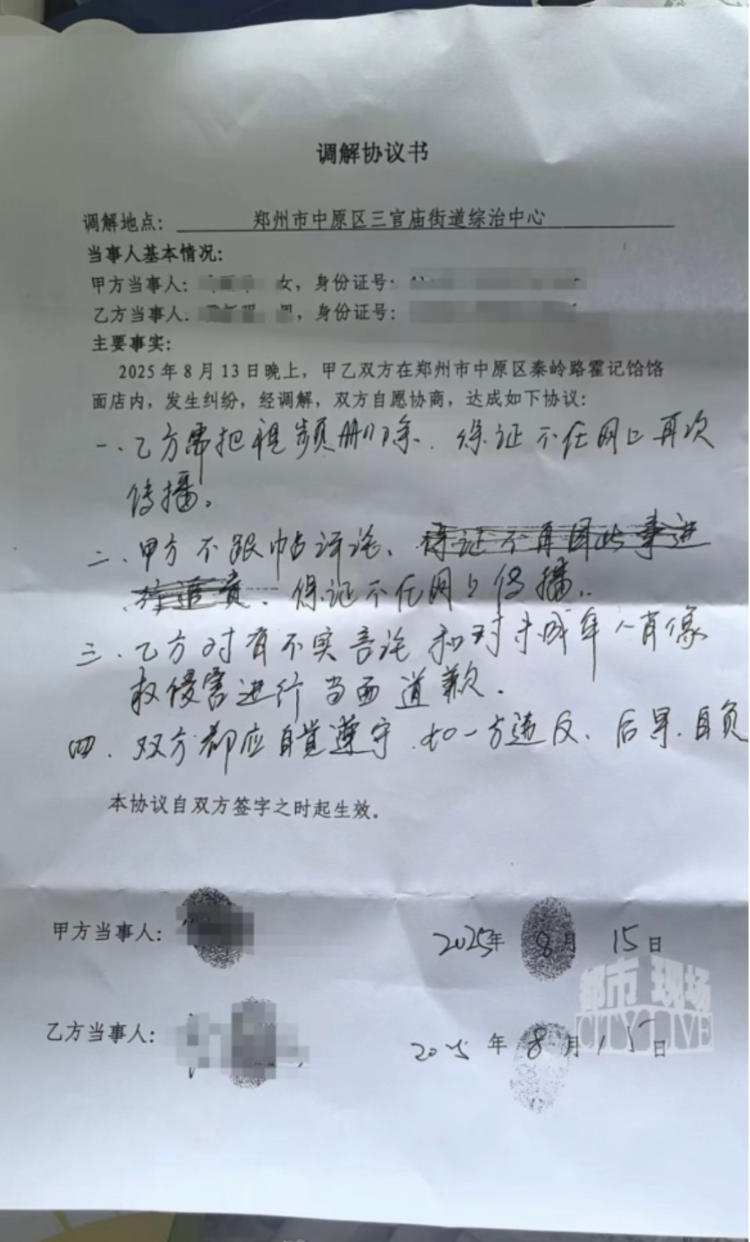 调解协议书
调解地点：郑州市中原区三官庙街道综治中心
当事人基本情况：
甲方当事人： 女，身份证号：
乙方当事人. 男，身份证号：
主要事实：
2025年8月13日晚上，甲乙双方在郑州市中原区秦岭路霍记饸饹
面店内，发生纠纷，经调解，双方自愿协商，达成如下协议：
一、乙方需把视频删除、保证不在网上再次
传播。
二、甲方不跟帖评论、保证不再因此事进
行追责、保证不在网上传播。
三、乙方对有不实言论和对未成年人肖像
权侵害进行当面道歉.
四、双方都应自觉遵守.如一方违反、后果.自负
本协议自双方签字之时起生效。
甲方当事人： 2025年8月15日
乙方当事人： 2025年8月15日
都市现场
CITY LIVE